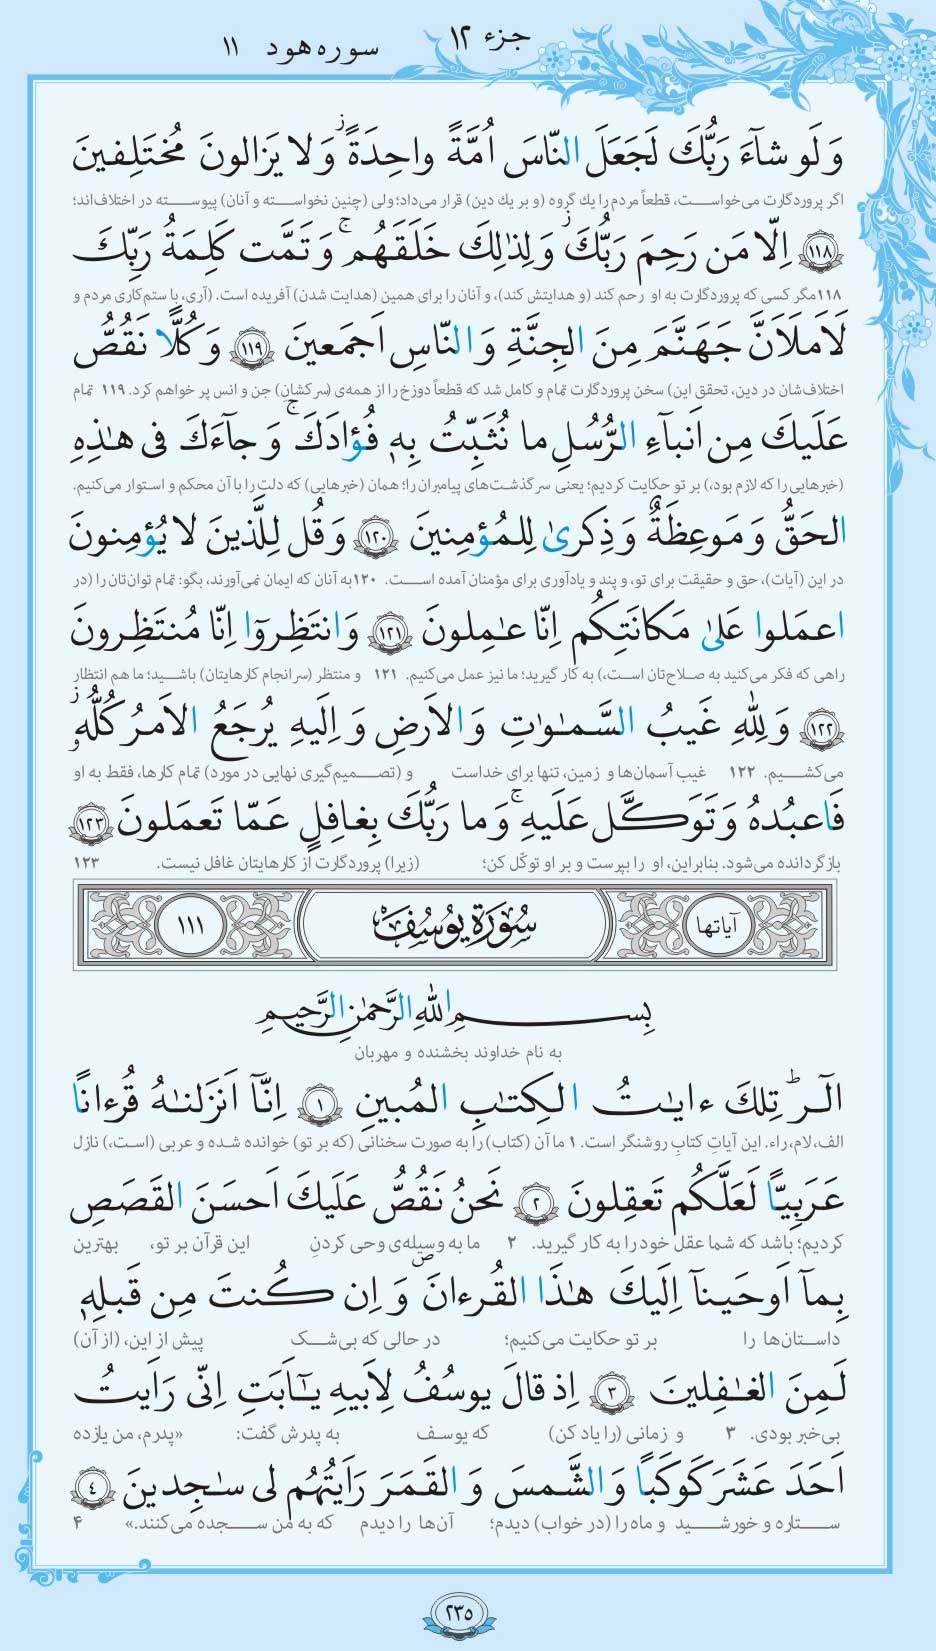 جزء ۱۲
سوره هود ۱۱
وَلَو شآءَ رَبُّكَ لَجَعَلَ النّاسَ اُمَّةً واحِدَةً ۖ وَلا يَزالونَ مُختَلِفينَ
اگر پروردگارت می‌خواست، قطعاً مردم را یك گروه (و بر یك دین) قرار می‌داد؛ ولی (چنین نخواسته و آنان) پیوسته در اختلاف‌اند؛
﴿۱۱۸﴾ اِلّا مَن رَحِمَ رَبُّكَ ۚ وَلِذٰلِكَ خَلَقَهُم ۗ وَتَمَّت كَلِمَةُ رَبِّكَ
۱۱۸ مگر کسی که پروردگارت به او رحم کند (و هدایتش کند)، و آنان را برای همین (هدایت شدن) آفریده است. (آری، با ستم‌کاری مردم و
لَاَملَاَنَّ جَهَنَّمَ مِنَ الجِنَّةِ وَالنّاسِ اَجمَعينَ ﴿۱۱۹﴾ وَكُلًّا نَقُصُّ
اختلاف‌شان در دین، تحقق این) سخن پروردگارت تمام و کامل شد که قطعاً دوزخ را از همه‌ی (سرکشانِ) جن و انس پر خواهم کرد. ۱۱۹ تمام
عَلَيكَ مِن اَنبآءِ الرُّسُلِ ما نُثَبِّتُ بِهٖ فُؤادَكَ ۚ وَجآءَكَ فى هٰذِهِ
(خبرهایی را که لازم بود،) بر تو حکایت کردیم؛ یعنی سرگذشت‌های پیامبران را؛ همان (خبرهایی) که دلت را با آن محکم و استوار می‌کنیم.
الحَقُّ وَمَوعِظَةٌ وَذِكرىٰ لِلمُؤمِنينَ ﴿۱۲۰﴾ وَقُل لِلَّذينَ لا يُؤمِنونَ
در این (آیات)، حق و حقیقت برای تو، و پند و یادآوری برای مؤمنان آمده است. ۱۲۰ به آنان که ایمان نمی‌آورند، بگو: تمام توان‌تان را (در
اعمَلوا عَلىٰ مَكانَتِكُم اِنّا عٰمِلونَ ﴿۱۲۱﴾ وَانتَظِروٓا اِنّا مُنتَظِرونَ
راهی که فکر می‌کنید به صلاح‌تان است،) به کار گیرید؛ ما نیز عمل می‌کنیم. ۱۲۱ و منتظر (سرانجام کارهایتان) باشید؛ ما هم انتظار
﴿۱۲۲﴾ وَلِلّٰهِ غَيبُ السَّمٰوٰتِ وَالاَرضِ وَاِلَيهِ يُرجَعُ الاَمرُ كُلُّهٗ
می‌کشیم. ۱۲۲ غیب آسمان‌ها و زمین، تنها برای خداست و (تصمیم‌گیری نهایی در مورد) تمام کارها، فقط به او
فَاعبُدهُ وَتَوَكَّل عَلَيهِ ۚ وَما رَبُّكَ بِغافِلٍ عَمّا تَعمَلونَ ﴿۱۲۳﴾
بازگردانده می‌شود. بنابراین، او را بپرست و بر او توکّل کن؛ (زیرا) پروردگارت از کارهایتان غافل نیست. ۱۲۳
آیاتها سُورَةُ يُوسُفَ ۱۱۱
بِسمِ اللّٰهِ الرَّحمٰنِ الرَّحيمِ
به نام خداوند بخشنده و مهربان
الٓر ۚ تِلكَ ءايٰتُ الكِتٰبِ المُبينِ ﴿۱﴾ اِنّآ اَنزَلنٰهُ قُرءانًا
الف، لام، راء. این آیاتِ کتابِ روشنگر است. ۱ ما آن (کتاب) را به صورت سخنانی (که بر تو) خوانده شده و عربی (است،) نازل
عَرَبِيًّا لَعَلَّكُم تَعقِلونَ ﴿۲﴾ نَحنُ نَقُصُّ عَلَيكَ اَحسَنَ القَصَصِ
کردیم؛ باشد که شما عقل خود را به کار گیرید. ۲ ما به وسیله‌ی وحی کردنِ این قرآن بر تو، بهترین
بِمآ اَوحَينآ اِلَيكَ هٰذَا القُرءانَ وَاِن كُنتَ مِن قَبلِهٖ
داستان‌ها را بر تو حکایت می‌کنیم؛ در حالی که بی‌شک پیش از این، (از آن)
لَمِنَ الغٰفِلينَ ﴿۳﴾ اِذ قالَ يوسُفُ لِاَبيهِ يٰٓاَبَتِ اِنّى رَاَيتُ
بی‌خبر بودی. ۳ و زمانی (را یاد کن) که یوسف به پدرش گفت: «پدرم، من یازده
اَحَدَ عَشَرَ كَوكَبًا وَالشَّمسَ وَالقَمَرَ رَاَيتُهُم لى سٰجِدينَ ﴿٤﴾
ستاره و خورشید و ماه را (در خواب) دیدم؛ آن‌ها را دیدم که به من سجده می‌کنند.» ۴
۲۳۵